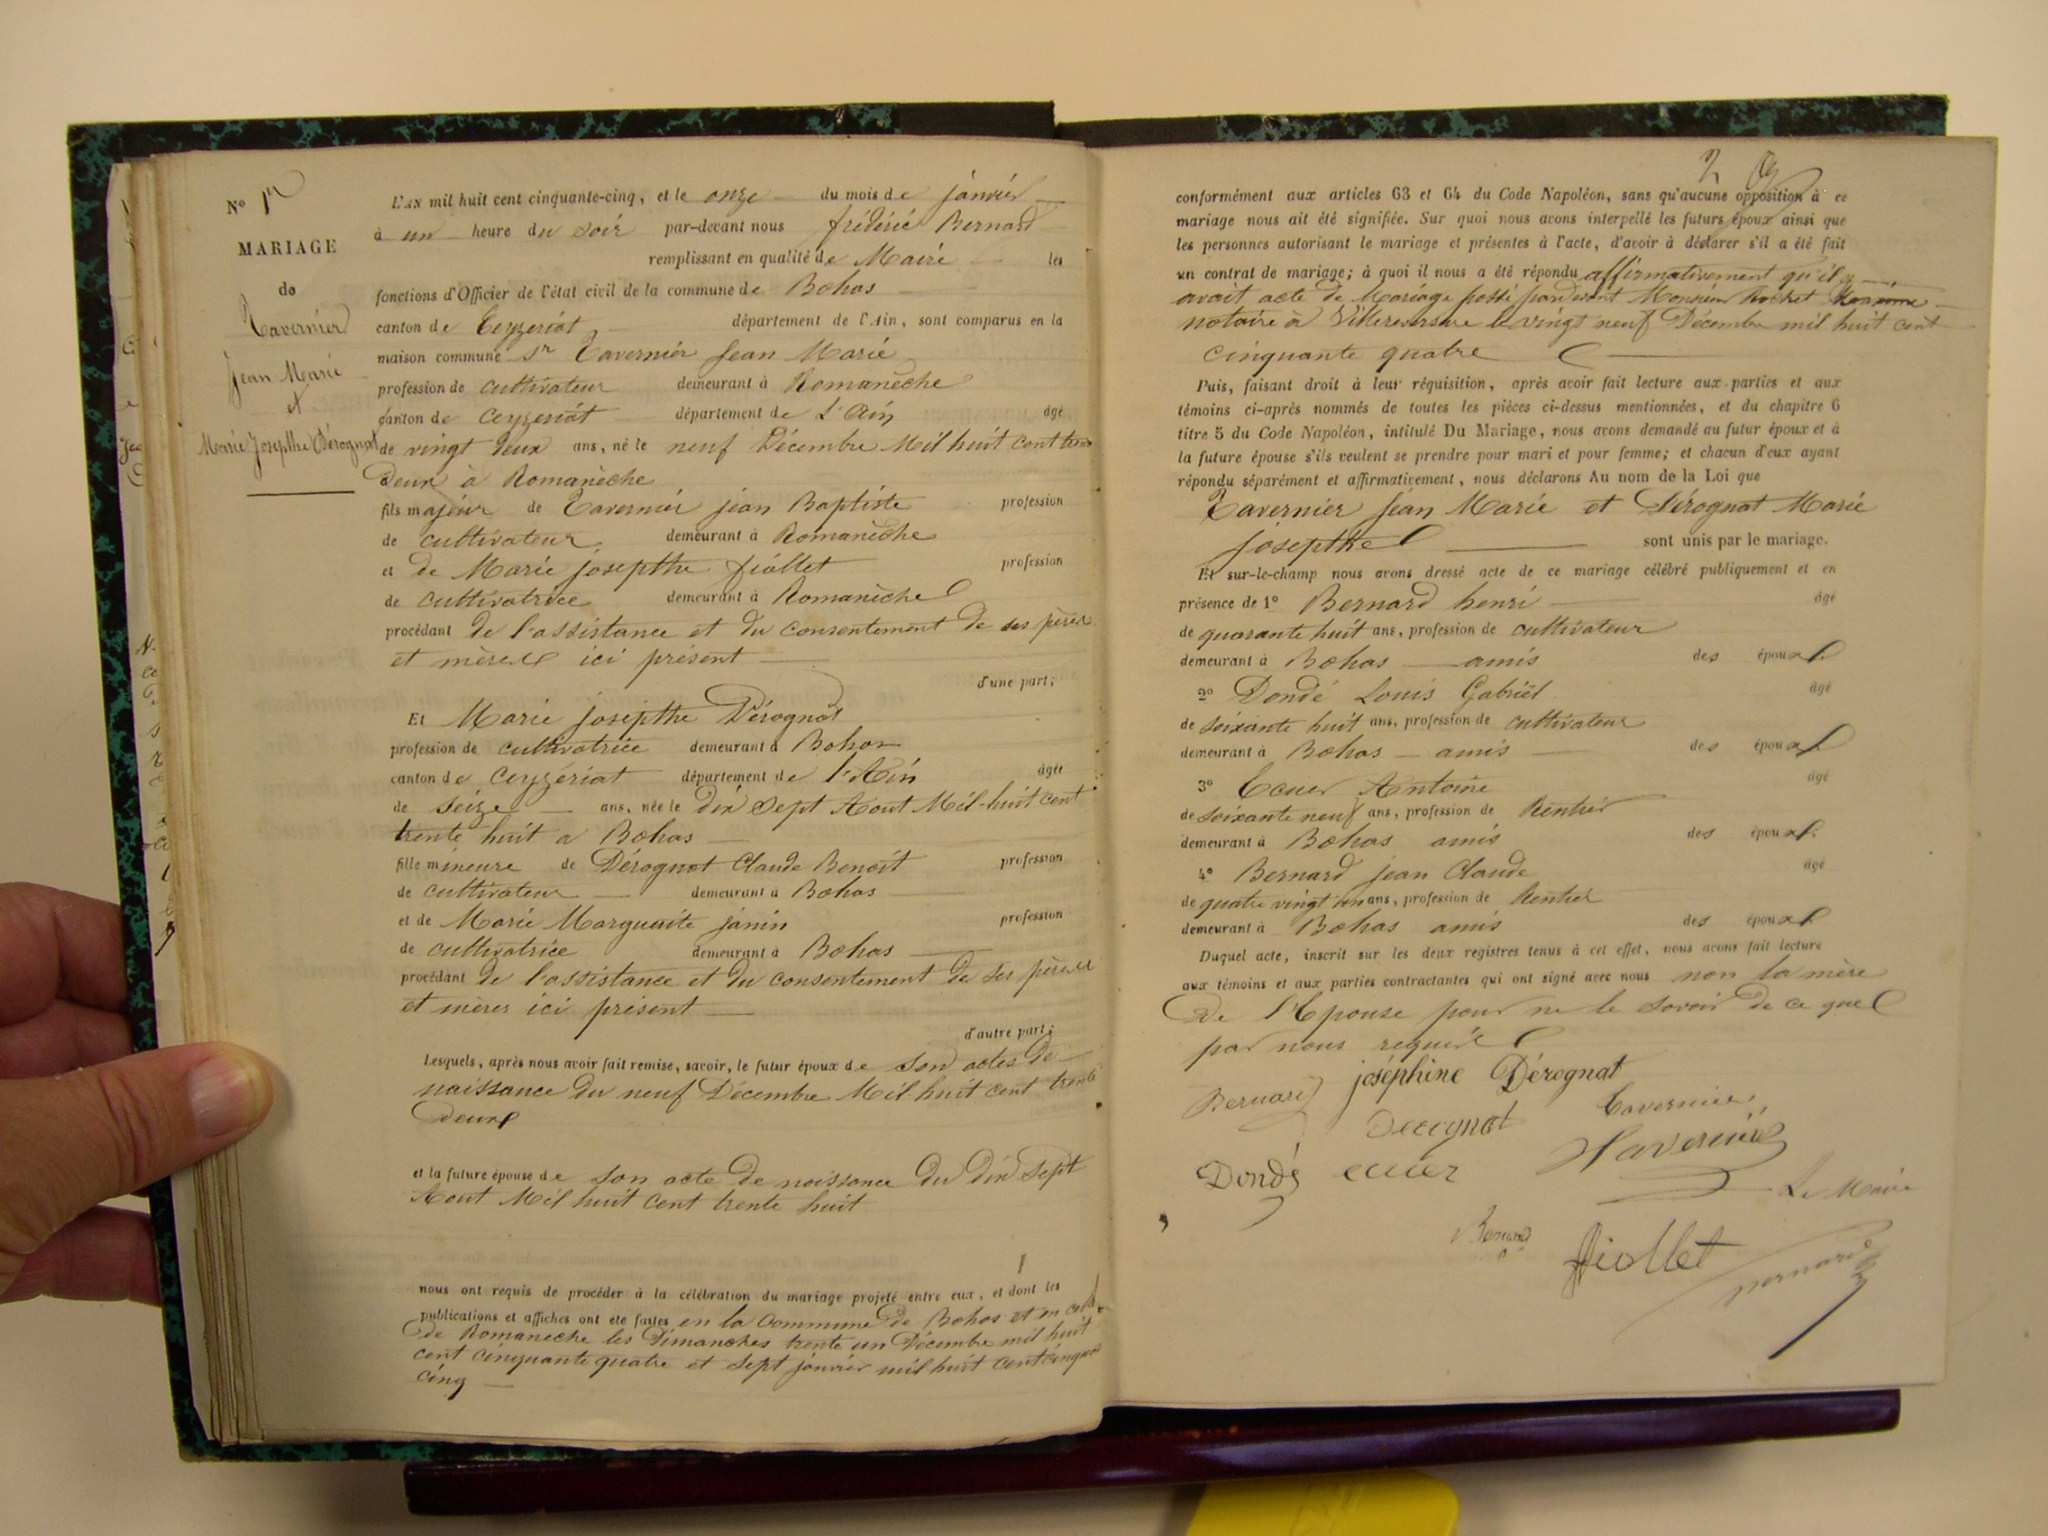 N° 1er
MARIAGE
de
Tavernier
Jean Marie
et
Marie Josepthe Dérognat
L'AN mil huit cent cinquante-cinq, et le onze du mois de janvier
à un heure du soir par-devant nous frédéric Bernard
remplissant en qualité de Maire les
fonctions d'Officier de l'état civil de la commune de Bohas
canton de Ceyzeriat département de l'Ain, sont comparus en la
maison commune Sr Tavernier Jean Marie
profession de cultivateur demeurant à Romanèche
canton de Ceyzeriat département de L'Ain âgé
de vingt deux ans, né le neuf Décembre Mil huit cent trente
deux à Romanèche
fils majeur de Tavernier jean Baptiste profession
de cultivateur demeurant à Romanèche
et de Marie josepthe fiollet profession
de cultivatrice demeurant à Romanèche
procédant de l'assistance et du consentement de ses pères
et mères ici présent
d'une part;
Et Marie josepthe Dérognat
profession de cultivatrice demeurant à Bohas
canton de Ceyzériat département de l'Ain âgée
de seize ans, née le dix sept Aout Mil huit cent
trente huit a Bohas
fille mineure de Dérognat Claude Benoit profession
de cultivateur demeurant à Bohas
et de Marie Marguerite janin profession
de cultivatrice demeurant à Bohas
procédant de l'assistance et du consentement de ses pères
et mères ici présent
d'autre part;
Lesquels, après nous avoir fait remise, savoir, le futur époux de son actes de
naissance du neuf Décembre Mil huit cent trente
deux
et la future épouse de son acte de naissance du dix sept
Aout Mil huit cent trente huit
nous ont requis de procéder à la célébration du mariage projeté entre eux, et dont les
publications et affiches ont été faites en la Commune de Bohas et en celle
de Romaneche les Dimanches trente un Décembre mil huit
cent cinquante quatre et sept janvier mil huit cent cinquante
cinq
2
conformément aux articles 63 et 64 du Code Napoléon, sans qu'aucune opposition à ce
mariage nous ait été signifiée. Sur quoi nous avons interpellé les futurs époux ainsi que
les personnes autorisant le mariage et présentes à l'acte, d'avoir à déclarer s'il a été fait
un contrat de mariage; à quoi il nous a été répondu affirmativement qu'il y
avait acte de Mariage passé pardevant Monsieur Rochet
notaire à Villereversure le vingt neuf Décembre mil huit cent
cinquante quatre
Puis, faisant droit à leur réquisition, après avoir fait lecture aux parties et aux
témoins ci-après nommés de toutes les pièces ci-dessus mentionnées, et du chapitre 6
titre 5 du Code Napoléon, intitulé Du Mariage, nous avons demandé au futur époux et à
la future épouse s'ils veulent se prendre pour mari et pour femme; et chacun d'eux ayant
répondu séparément et affirmativement, nous déclarons Au nom de la Loi que
Tavernier Jean Marie et Dérognat Marie
josepthe sont unis par le mariage.
Et sur-le-champ nous avons dressé acte de ce mariage célébré publiquement et en
présence de 1° Bernard henri âgé
de quarante huit ans, profession de cultivateur
demeurant à Bohas amis des époux
2° Dondé Louis Gabriël âgé
de soixante huit ans, profession de cultivateur
demeurant à Bohas amis des époux
3° Ecuer Antoine âgé
de soixante neuf ans, profession de Rentier
demeurant à Bohas amis des époux
4° Bernard jean Claude âgé
de quatre vingt un ans, profession de Rentier
demeurant à Bohas amis des époux
Duquel acte, inscrit sur les deux registres tenus à cet effet, nous avons fait lecture
aux témoins et aux parties contractantes qui ont signé avec nous non la mère
de l'Epouse pour ne le savoir de ce que
par nous requise
joséphine Dérognat
Bernard Derognat Tavernier
Dondé ecuer Tavernier
Le Maire
Bernard fiollet Bernard